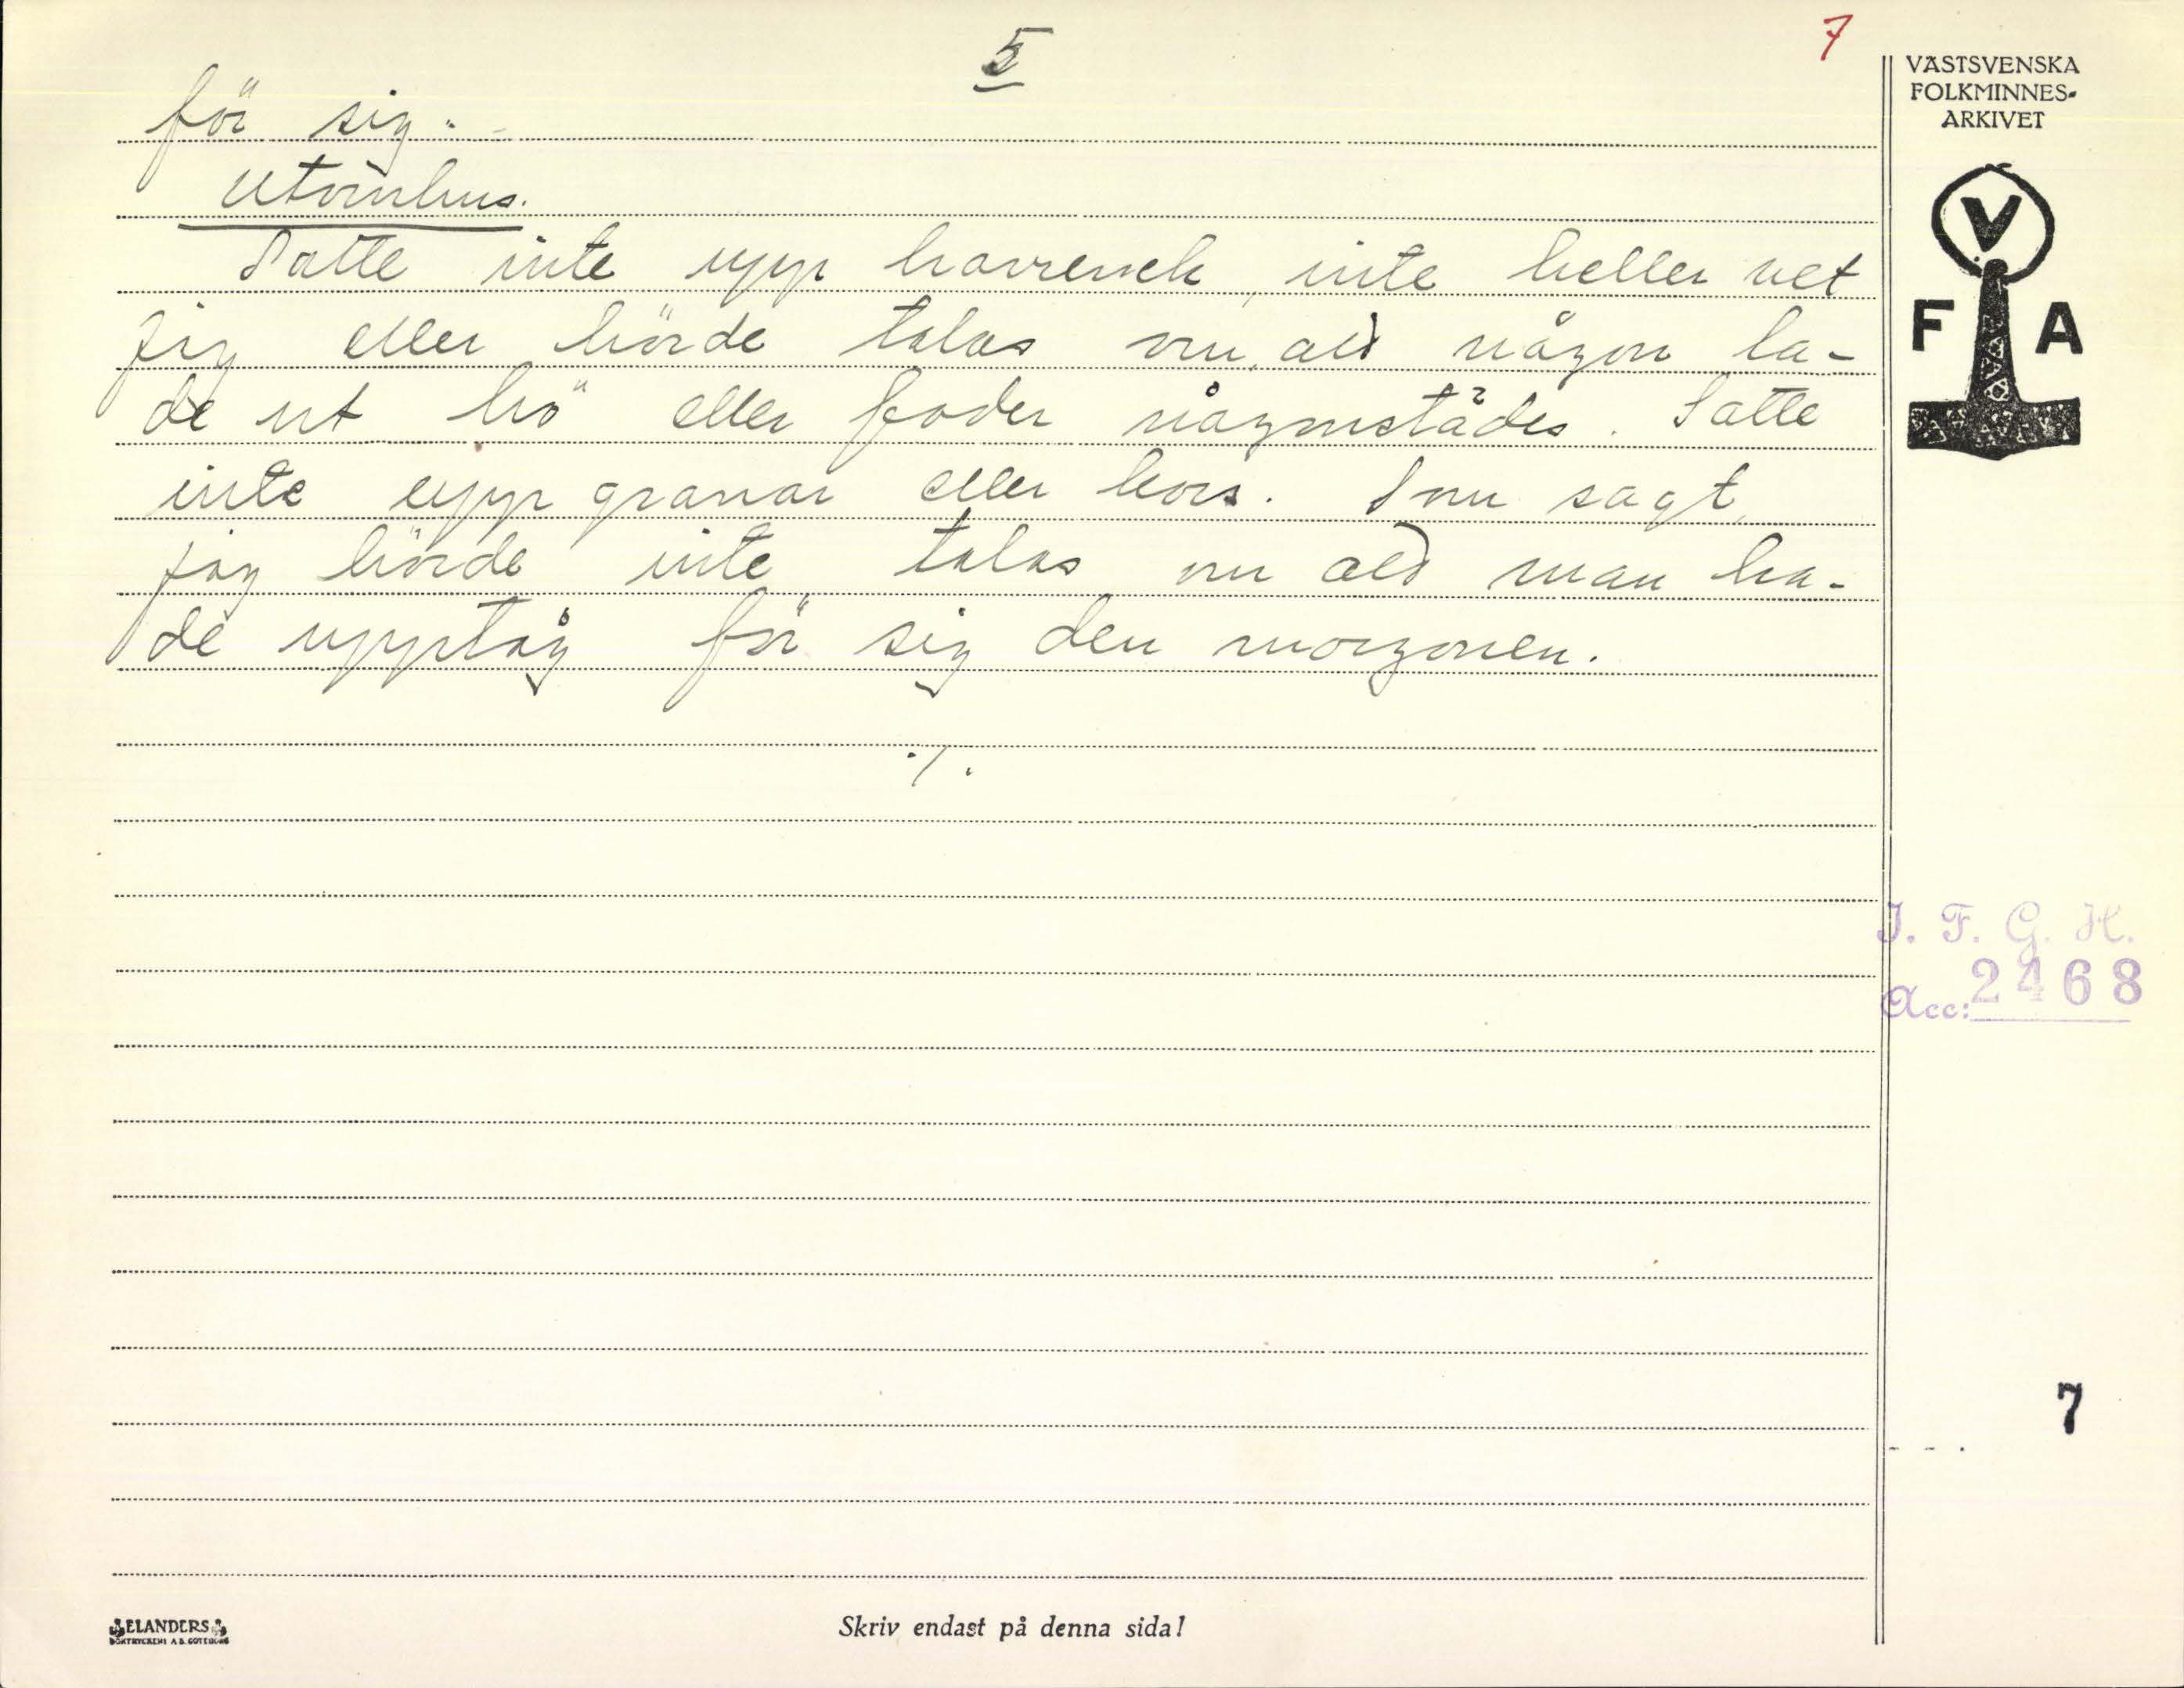 5
7
för sig.
Utomhus.
Satte inte upp havrenek, inte heller vet
jag eller hörde talas om, att någon la-
de ut hö eller foder någonstädes. Satte
inte upp granar eller kors. Som sagt,
jag hörde inte talas om att man ha-
de upptåg för sig den morgonen.
./.
VÄSTSVENSKA
FOLKMINNES-
ARKIVET
V
F A
I. F. G. H.
Acc: 2468
7
ELANDERS
BOKTRYCKERI A.B. GÖTEBORG
Skriv endast på denna sida!